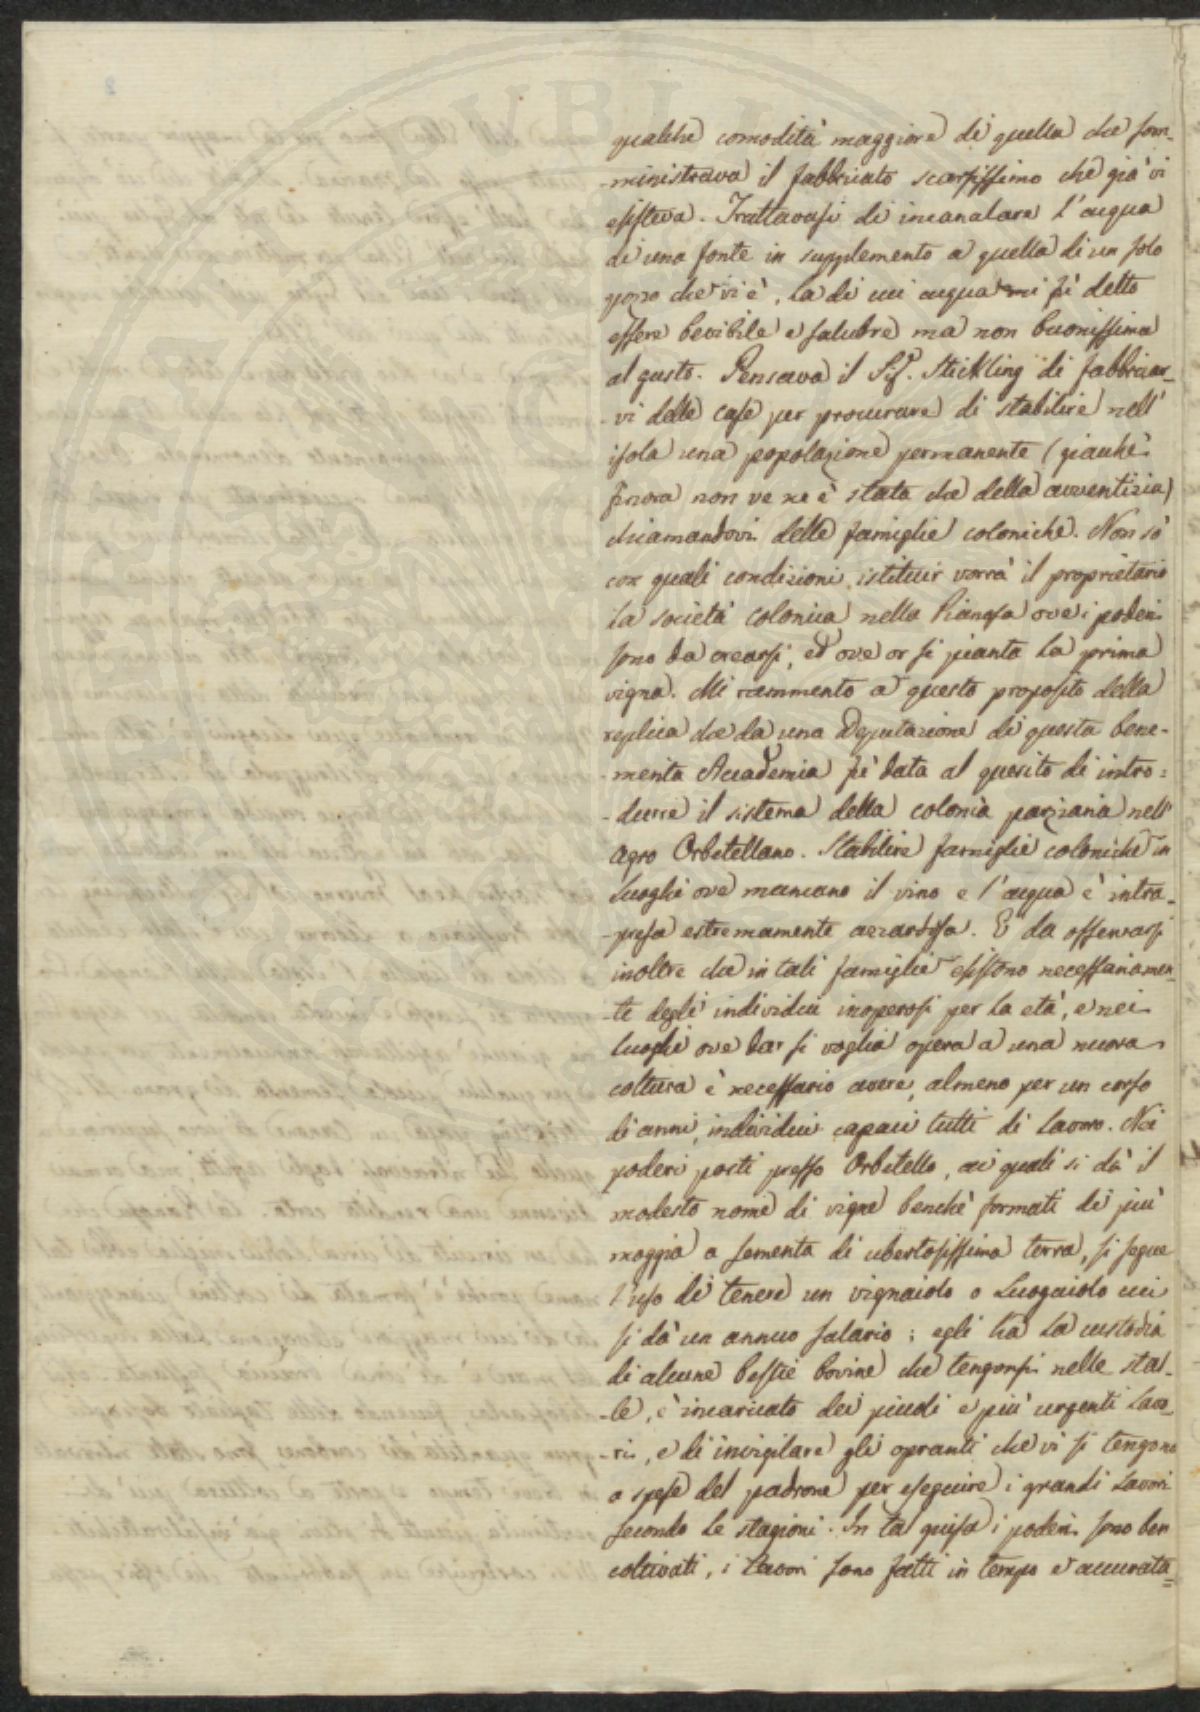 qualche comodità maggiore di quella che som-
-ministrava il fabbricato scarsissimo che già vi
esisteva. Trattavasi di incanalare l'acqua
di una fonte in supplemento a quella di un solo
pozzo che vi è, la di cui acqua mi fù detto
essere bevibile e salubre ma non buonissima
al gusto. Pensava il Sig.r Stickling di fabbricar-
-vi delle case per procurare di stabilire nell'
isola una popolazione permanente (giacchè
finora non ve ne è stata che della avventizia)
chiamandovi delle famiglie coloniche. Non sò
con quali condizioni istituir vorrà il proprietario
la società colonica nella Pianosa ove i poderi
sono da crearsi, ed ove or si pianta la prima
vigna. Mi rammento a questo proposito della
replica che da una Deputazione di questa bene-
-merita Accademia fù data al quesito di intro=
-durre il sistema della colonìa parziaria nell'
agro Orbetellano. Stabilire famiglie coloniche in
luoghi ove mancano il vino e l'acqua è intra-
-presa estremamente azzardosa. E da osservarsi
inoltre che in tali famiglie esistono necessariamen-
-te degli individui inoperosi per la età, e nei
luoghi ove dar si voglia opera a una nuova
coltura è necessario avere, almeno per un corso
di anni, individui capaci tutti di lavoro. Nei
poderi posti presso Orbetello, ai quali si dà il
modesto nome di vigne benchè formati di più
moggia a sementa di ubertosissima terra, si segue
l'uso di tenere un vignaiolo o Luogaiolo cui
si dà un annuo salario; egli ha la custodia
di alcune bestie bovine che tengonsi nelle stal-
-le, è incaricato dei piccoli e più urgenti lavo-
-ri, e di invigilare gli opranti che vi si tengono
a spese del padrone per eseguire i grandi lavori
secondo le stagioni. In tal guisa i poderi sono ben
coltivati, i lavori sono fatti in tempo e accurata=